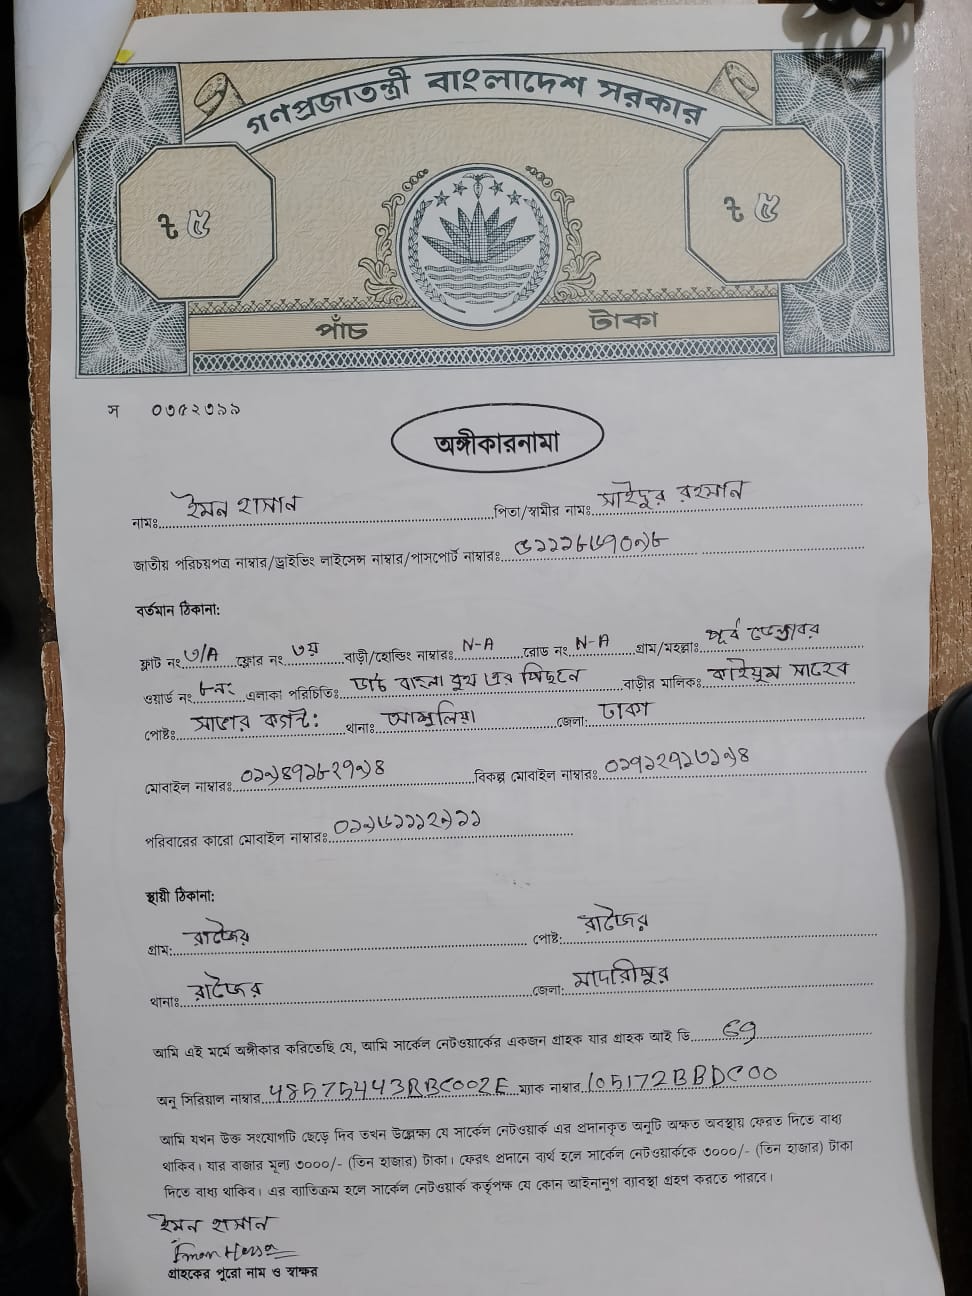 গণপ্রজাতন্ত্রী বাংলাদেশ সরকার
৳ ৫ ৳ ৫
পাঁচ টাকা
স ০৩৫২৩৯৯
অঙ্গীকারনামা
নামঃ ইমন হাসান পিতা/স্বামীর নামঃ সাইদুর রহমান
জাতীয় পরিচয়পত্র নাম্বার/ড্রাইভিং লাইসেন্স নাম্বার/পাসপোর্ট নাম্বারঃ
বর্তমান ঠিকানা:
ফ্লাট নং ৩/A ফ্লোর নং ৩য় বাড়ী/হোল্ডিং নাম্বারঃ N-A রোড নং N-A গ্রাম/মহল্লাঃ পূর্ব ডেন্ডাবর
ওয়ার্ড নং ৮নং এলাকা পরিচিতিঃ ডাচ বাংলা বুথ এর পিছনে বাড়ীর মালিকঃ কাইয়ুম সাহেব
পোষ্টঃ সাভার ক্যান্ট: থানাঃ আশুলিয়া জেলা: ঢাকা
মোবাইল নাম্বারঃ বিকল্প মোবাইল নাম্বারঃ
পরিবারের কারো মোবাইল নাম্বারঃ
স্থায়ী ঠিকানা:
গ্রাম: রাজৈর পোষ্ট: রাজৈর
থানাঃ রাজৈর জেলা: মাদারীপুর
আমি এই মর্মে অঙ্গীকার করিতেছি যে, আমি সার্কেল নেটওয়ার্কের একজন গ্রাহক যার গ্রাহক আই ডি 69
অনু সিরিয়াল নাম্বার 48575443BBC002E ম্যাক নাম্বার 105172BBDC00
আমি যখন উক্ত সংযোগটি ছেড়ে দিব তখন উল্লেক্ষ্য যে সার্কেল নেটওয়ার্ক এর প্রদানকৃত অনুটি অক্ষত অবস্থায় ফেরত দিতে বাধ্য
থাকিব। যার বাজার মূল্য ৩০০০/- (তিন হাজার) টাকা। ফেরৎ প্রদানে ব্যর্থ হলে সার্কেল নেটওয়ার্ককে ৩০০০/- (তিন হাজার) টাকা
দিতে বাধ্য থাকিব। এর ব্যাতিক্রম হলে সার্কেল নেটওয়ার্ক কর্তৃপক্ষ যে কোন আইনানুগ ব্যাবস্থা গ্রহণ করতে পারবে।
ইমন হাসান
গ্রাহকের পুরো নাম ও স্বাক্ষর